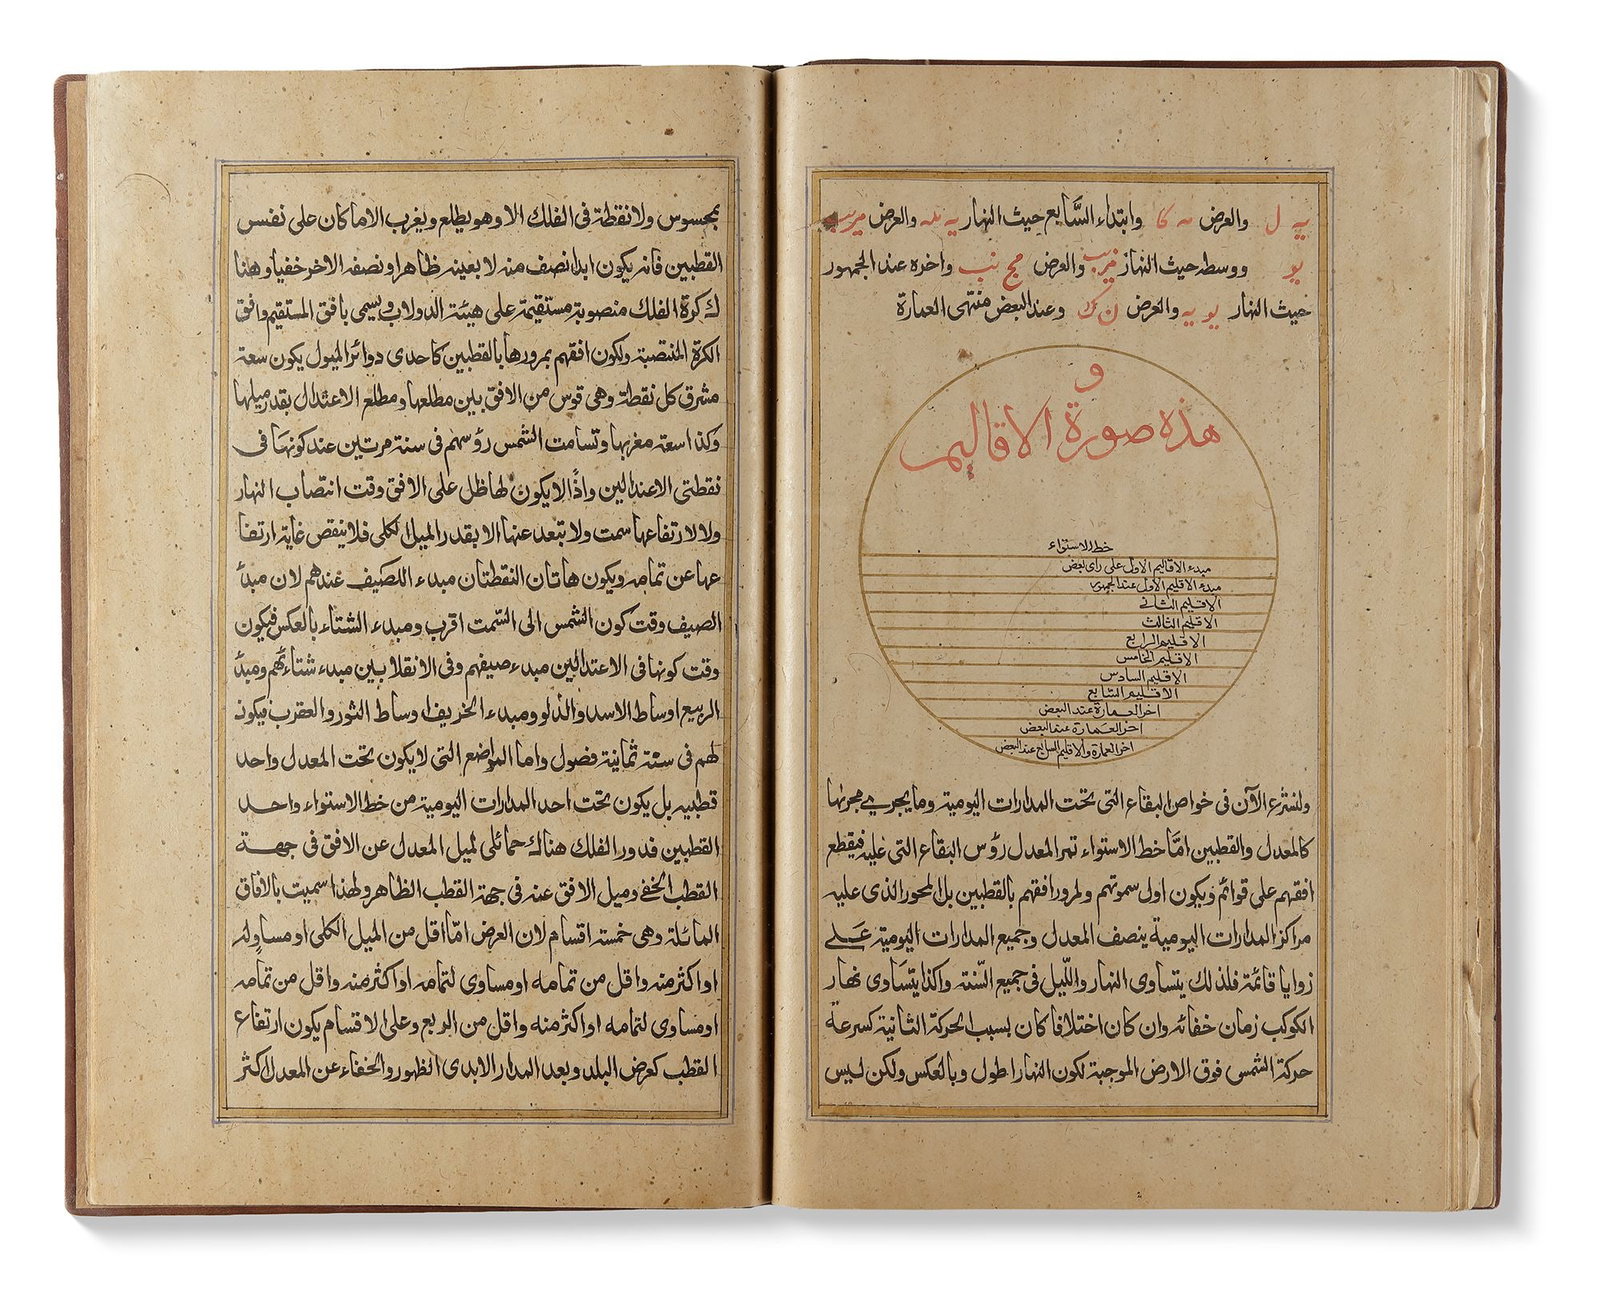 يه ل والعرض مه كا وابتداء السَّابع حيث النهار يه مه والعرض
يو ووسطه حيث النهار والعرض مح نب واخره عند الجمهور
حيث النهار يو يه والعرض ن ك وعند البعض منتهى العمارة
و
هذه صورة الاقاليم
خط الاستواء
مبدء الاقاليم الاول على راى بعض
مبدء الاقليم الاول عند الجمهور
الاقليم الثانى
الاقليم الثالث
الاقليم الرابع
الاقليم الخامس
الاقليم السادس
الاقليم السابع
اخر العمارة عند البعض
اخر العمارة عند البعض
اخر العمارة والاقليم السابع عند البعض
ولنشرع الآن فى خواص البقاع التى تحت المدارات اليومية وما يجرى مجريها
كالمعدل والقطبين امّا خط الاستواء تمر المعدل رؤس البقاع التى عليه فيقطع
افقهم على قوائم ويكون اول سموتهم ولمرور افقهم بالقطبين بل المحور الذى عليه
مراكز المدارات اليومية ينصف المعدل وجميع المدارات اليومية على
زوايا قائمة فلذلك يتساوى النهار واللّيل فى جميع السّنة وكذا يتساوى نهار
الكوكب زمان خفائه وان كان اختلافا كان بسبب الحركة الثانية كسرعة
حركة الشمس فوق الارض الموجبة لكون النهار اطول وبالعكس ولكن ليس
بمحسوس ولا نقطة فى الفلك الا وهو يطلع ويغرب الا ما كان على نفس
القطبين فانه يكون ابدا نصف منه لا بعينه ظاهرا ونصفه الاخر خفيا وهنا
ك كرة الفلك منصوبة مستقيمة على هيئة الدولاب ويسمى بافق المستقيم وافق
الكرة المنتصبة ولكون افقهم بمرورها بالقطبين كاحدى دوائر الميول يكون سعة
مشرق كل نقطة وهى قوس من الافق بين مطلعها ومطلع الاعتدال بقدر ميلها
وكذا سعة مغربها وتسامت الشمس رؤسهم فى سنة مرتين عند كونها فى
نقطتى الاعتدالين واذًا لا يكون لها ظل على الافق وقت انتصاب النهار
ولا لارتفاعها سمت ولا تبعد عنها الا بقدر الميل الكلى فلا ينقص غاية ارتفا
عها عن تمامه ويكون هاتان النقطتان مبدء الصيف عندهم لان مبدأ
الصيف وقت كون الشمس الى السّمت اقرب ومبدء الشتاء بالعكس فيكون
وقت كونها فى الاعتدالين مبدء صيفهم وفى الانقلابين مبدء شتاءهم ومبدأ
الربيع اوساط الاسد والدلو ومبدء الخريف اوساط الثور والعقرب فيكون
لهم فى سنة ثمانية فصول واما المواضع التى لا يكون تحت المعدل واحد
قطبيه بل يكون تحت احد المدارات اليومية من خط الاستواء واحد
القطبين فدور الفلك هناك حمائلى لميل المعدل عن الافق فى جهة
القطب الخفى وميل الافق عنه فى جهة القطب الظاهر ولهذا سميت بالافاق
المائلة وهى خمسة اقسام لان العرض امّا اقل من الميل الكلى او مساو له
او اكثر منه واقل من تمامه او مساوى لتمامه او اكثر منه واقل من تمامه
او مساوى لتمامه او اكثر منه واقل من الربع وعلى الاقسام يكون ارتفاع
القطب كعرض البلد وبعد المدار الابدى الظهور والخفاء عن المعدل اكثر